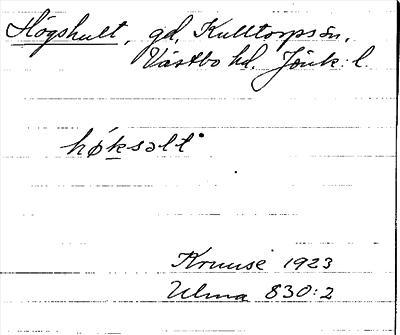 Högshult, gd, Kulltorps sn,
Västbo hd. Jönk. l.
høksəlt
Kruuse 1923
Ulma 830:2